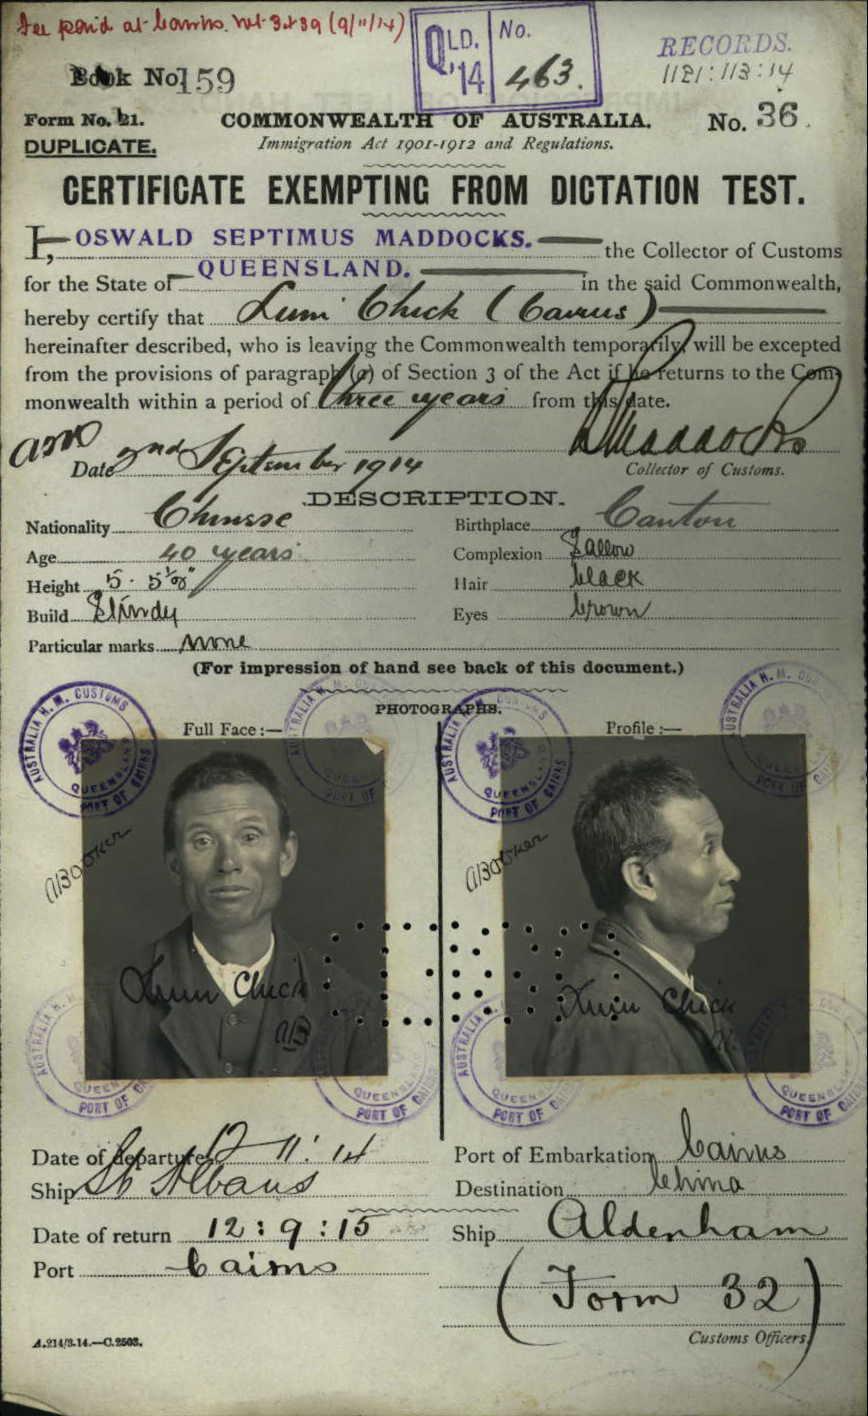 Fee paid at Cairns. (9/11/14)
QLD. '14 No. 463.
RECORDS.
Book No 159
Form No. 21.
COMMONWEALTH OF AUSTRALIA.
No. 36.
DUPLICATE.
Immigration Act 1901-1912 and Regulations.
CERTIFICATE EXEMPTING FROM DICTATION TEST.
I, OSWALD SEPTIMUS MADDOCKS. the Collector of Customs
for the State of QUEENSLAND. in the said Commonwealth,
hereby certify that Lum Chick (Cairns)
hereinafter described, who is leaving the Commonwealth temporarily, will be excepted
from the provisions of paragraph (a) of Section 3 of the Act if he returns to the Com-
monwealth within a period of three years from this date.
Date 2nd September 1914
Maddocks
Collector of Customs.
DESCRIPTION.
Nationality Chinese Birthplace Canton
Age 40 years Complexion Sallow
Height 5 · 5 1/8" Hair black
Build Sturdy Eyes brown
Particular marks None
(For impression of hand see back of this document.)
PHOTOGRAPHS.
Full Face :— Profile :—
AUSTRALIA H. M. CUSTOMS QUEENSLAND PORT OF CAIRNS
AUSTRALIA H. M. CUSTOMS QUEENSLAND PORT OF CAIRNS
Lum Chick
Lum Chick
Date of departure 11 : 14 Port of Embarkation Cairns
Ship St Albans Destination China
Date of return 12 : 9 : 15 Ship Aldenham
Port Cairns
(Form 32)
A.214/3.14.—C.2503.
Customs Officers.